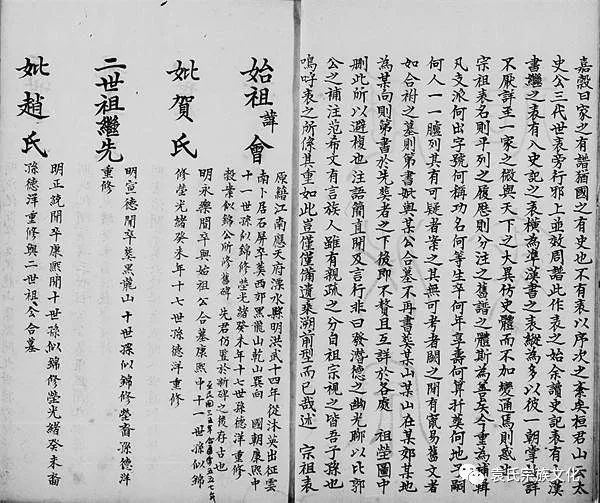 嘉穀曰家之有譜猶國之有史也不有表以序次之紊矣桓君山云太
史公三代世表旁行邪上並效周譜此作表之始余讀史記表有八漢
書繼之表有入史記之表橫為準漢書之表縱為多以彼一朝掌故
不厭詳至一家之微與天下之大異仿史體而不加變通焉則惑
宗祖表名則平列之履歷則分注之舊譜之體斯為善矣今重為補輯
凡支派何出字號何稱功名何等生卒何年享壽何算扦葬何地子嗣
何人一一臚列其有可疑者案之其無可考者闕之間有竄易舊文者
如合祔之墓則第書妣與某公合墓不再書葬某山某山在某郊某地
為某向則第書於先葬者之下後即不贅且互詳於各處 祖塋圖中
刪此所以避複也注語簡直間及言行非曰發潛德之幽光聊以比郭
公之補注范希文有言族人雖有親疏之分自祖宗視之皆吾子孫也
嗚呼表之所係其重如此豈僅僅備遺藁溯前型而已哉述 宗祖表
始祖諱會
原籍江南應天府溧水縣明洪武十四年從沐英出征雲
南卜居石屏卒葬西郊黑龍山乾山巽向 國朝康熙中
十一世孫似錦修塋光緒癸未年十七世孫德洋重修
穀案似錦公所修舊碑 先君仍置於新碑之後存古也
妣賀氏
明永樂間卒與始祖公合墓康熙中十一世孫似錦
修塋光緒癸未年十七世孫德洋重修
二世祖繼先
明宣德間卒葬黑龍山十世孫似錦修塋嗇孫德洋
重修
妣趙氏
明正統間卒康熙間十世孫似錦修塋光緒癸未嗇
孫德洋重修與二世祖公合墓
袁氏宗族文化